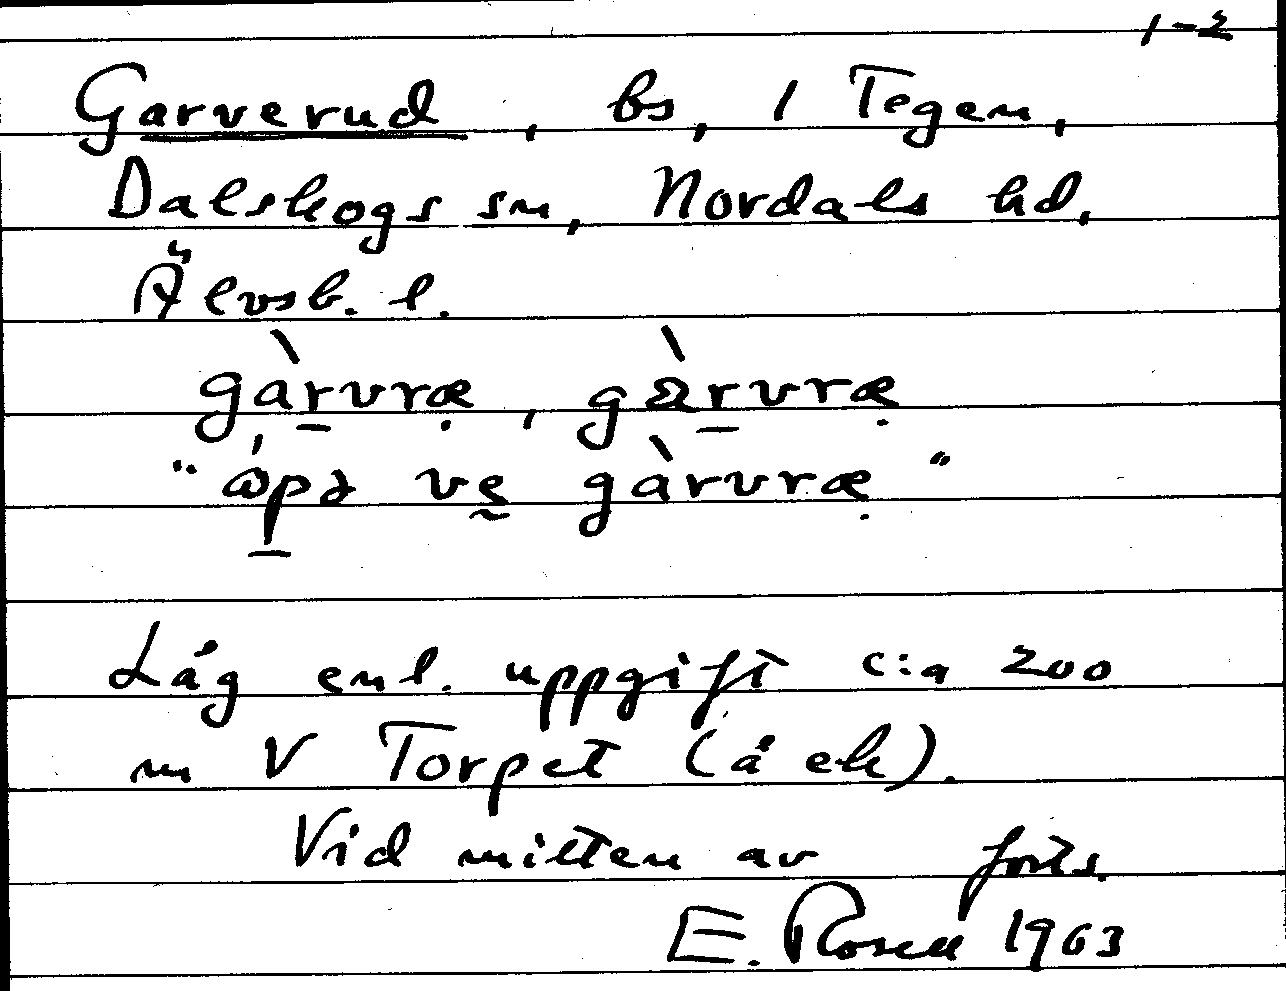 1-2
Garverud, bs, 1 Tegen,
Dalskogs sn, Nordals hd,
Älvsb. l.
gàrvræ̣, gàrvræ̣
" vḛ gàrvræ̣ "
Låg enl. uppgift c:a 200
m V Torpet (å ek).
Vid mitten av forts.
E. Rosell 1963